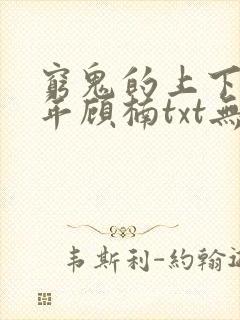 窮鬼的上下
年顾楠txt無
韦斯利-約翰遜